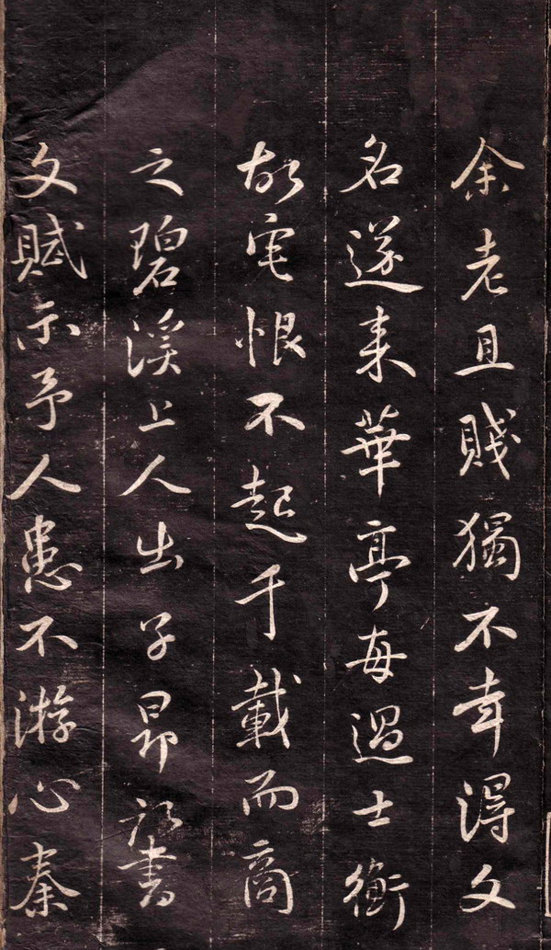 余老且賤獨不幸得文
名遂来華亭每過士衡
故宅恨不起千載而商
之碧溪上人出子昂所書
文賦示予人患不游心秦